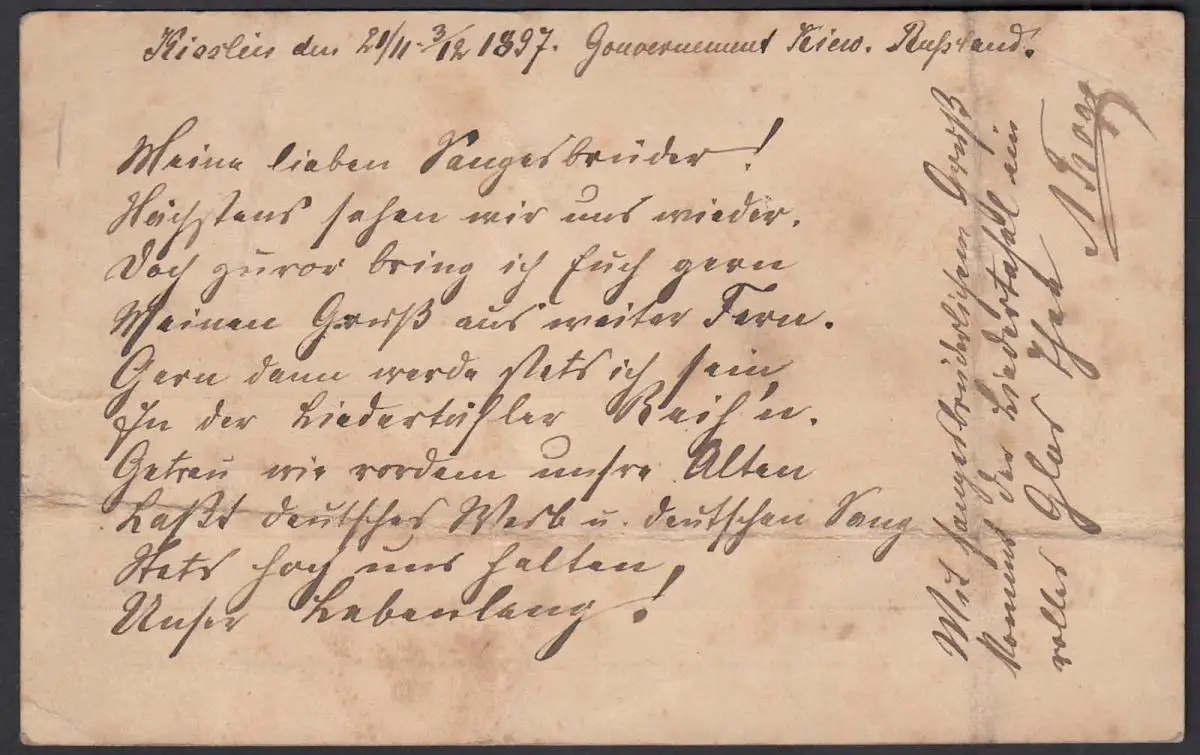 den 21/11 3/12 1897. Gouvernement Kiew. Rußland.
Meine lieben Sangesbrüder!
Nächstens sehen wir uns wieder.
Doch zuvor bring ich Euch gern
Meinen Gruß aus weiter Fern.
Gern dann werde stets ich sein
In der Liedertäfler Reih'n.
Getreu wie vordem unsre Alten
Laßt deutsches Weib u. deutschen Sang
Stets hoch uns halten,
Unser Lebenlang!
Mit sangesbrüderlichem Gruß
kommt der Liedertafel ein
volles Glas